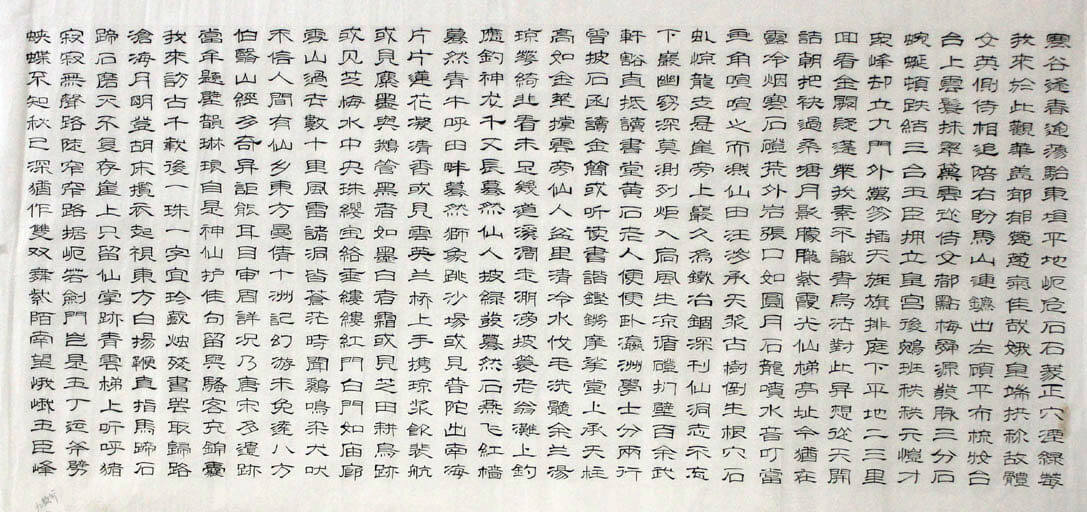 云谷逶春迤荡骀东垣平地屼危石石蒙正穴湮绿莓
我来於此观华嵩郁郁葱葱气佳哉娥皇端拱称故体
女英侧侍相追陪右盼马山连镳出左顾平布梳妆台
台上云鬟抹翠万云从侍女都点梅舜源发脉三分石
蜿蜒顿跌结三台玉臣拥立皇宫后鹓班秩秩元恺才
众峰却立九门外万笏插天旌旗排庭下平地二三里
面看金阙疑汉策我素不识青乌法对此升想从天开
诘朝把袂过柔塘月影朦胧紫霞光仙梯亭址今犹在
露冷烟寒石磴荒外岩张口如圆月石龙喷水音叮当
再角喧喧之而溅仙田汪渗承天浆古树倒生根穴石
虬惊龙走悬崖旁上岩久为铁冶锢深刊仙洞志不忘
下岩幽窈深莫测列炬入扃风生凉循磴扪壁百余武
轩豁直抵读书堂黄石老人便便卧瀛洲学士分两行
曾披石函读金简或听读书谐铿锵摩挲堂上承天柱
高如金茎撑云旁仙人盆里清冷水伐毛洗髓余兰汤
琼鳌绮非看未足几道溪涧走湖滂披蓑老翁滩上钓
应钓神龙千丈长蓦然仙人披绿发蓦然石燕飞红樯
蓦然青牛呼田畔蓦然狮象跳沙场或见普陀出南海
片片莲花凝清香或见云英兰桥上手携琼浆饮裴航
或见麋墨与鹅管黑者如墨白者霜或见芝田耕鸟迹
或见芝梅水中央珠缨宝络垂缕缕红门白门如庙廊
云山过去数十里风雷诸洞皆苍茫时闻鸡鸣案犬吠
不信人间有仙乡东方曼倩十洲记幻游未免遂八方
伯翳山经多奇异讵能耳目审周详况乃唐宋多遗迹
当年题壁韵琳琅自是神仙护佳句留与骚客充锦囊
我来访古千载后一珠一字宜珍藏烛残书罢取归路
沧海月明登胡床揽衣起视东方白扬鞭直指马蹄石
蹄石磨灭不复存崖上只留仙掌迹青云梯上听呼猪
寂寂无声路陡窄窄路据屼若剑门岂是五丁运斧劈
蛱蝶不知秋已深犹作双双舞紫陌南望峨峨玉臣峰